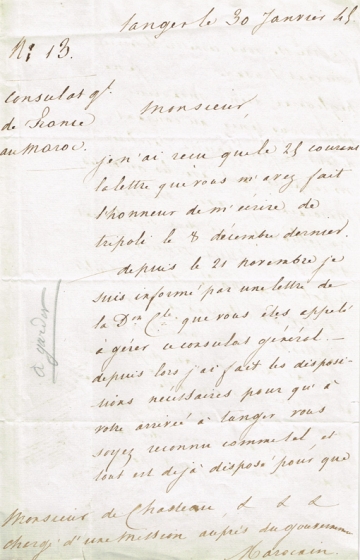 Tanger le 30 Janvier 45
N: 13.
Consulat gl.
de France
au Maroc.
Monsieur,
je n'ai reçu que le 25 courant
la lettre que vous m'avez fait
l'honneur de m'écrire de
tripoli le 8 décembre dernier.
depuis le 21 novembre je
suis informé par une lettre de
la Don Cle. que vous êtes appelé
à gérer ce consulat général. —
depuis lors j'ai fait les disposi-
-tions nécessaires pour qu'à
votre arrivée à tanger vous
soyez reconnu comme tel, et
tout est déjà disposé pour que
à garder
Monsieur de Chasteau, & & &
chargé d'une Mission auprès du gouvernemt
Marocain.